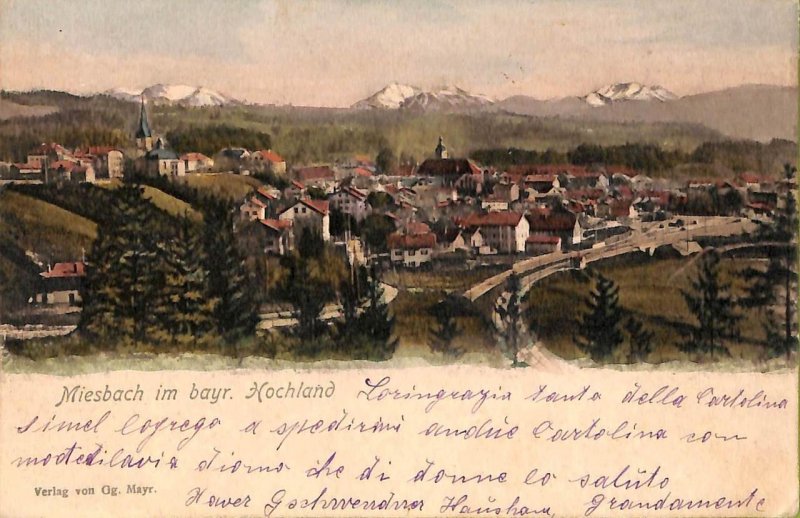 Miesbach im bayr. Hochland Loringrazia tanto della Cartolina
simel lo prego a spedirmi anduè Cartolina con
che di donne lo saluto
Verlag von Gg. Mayr.
Xaver Gschwendner Hausham, Grandamente